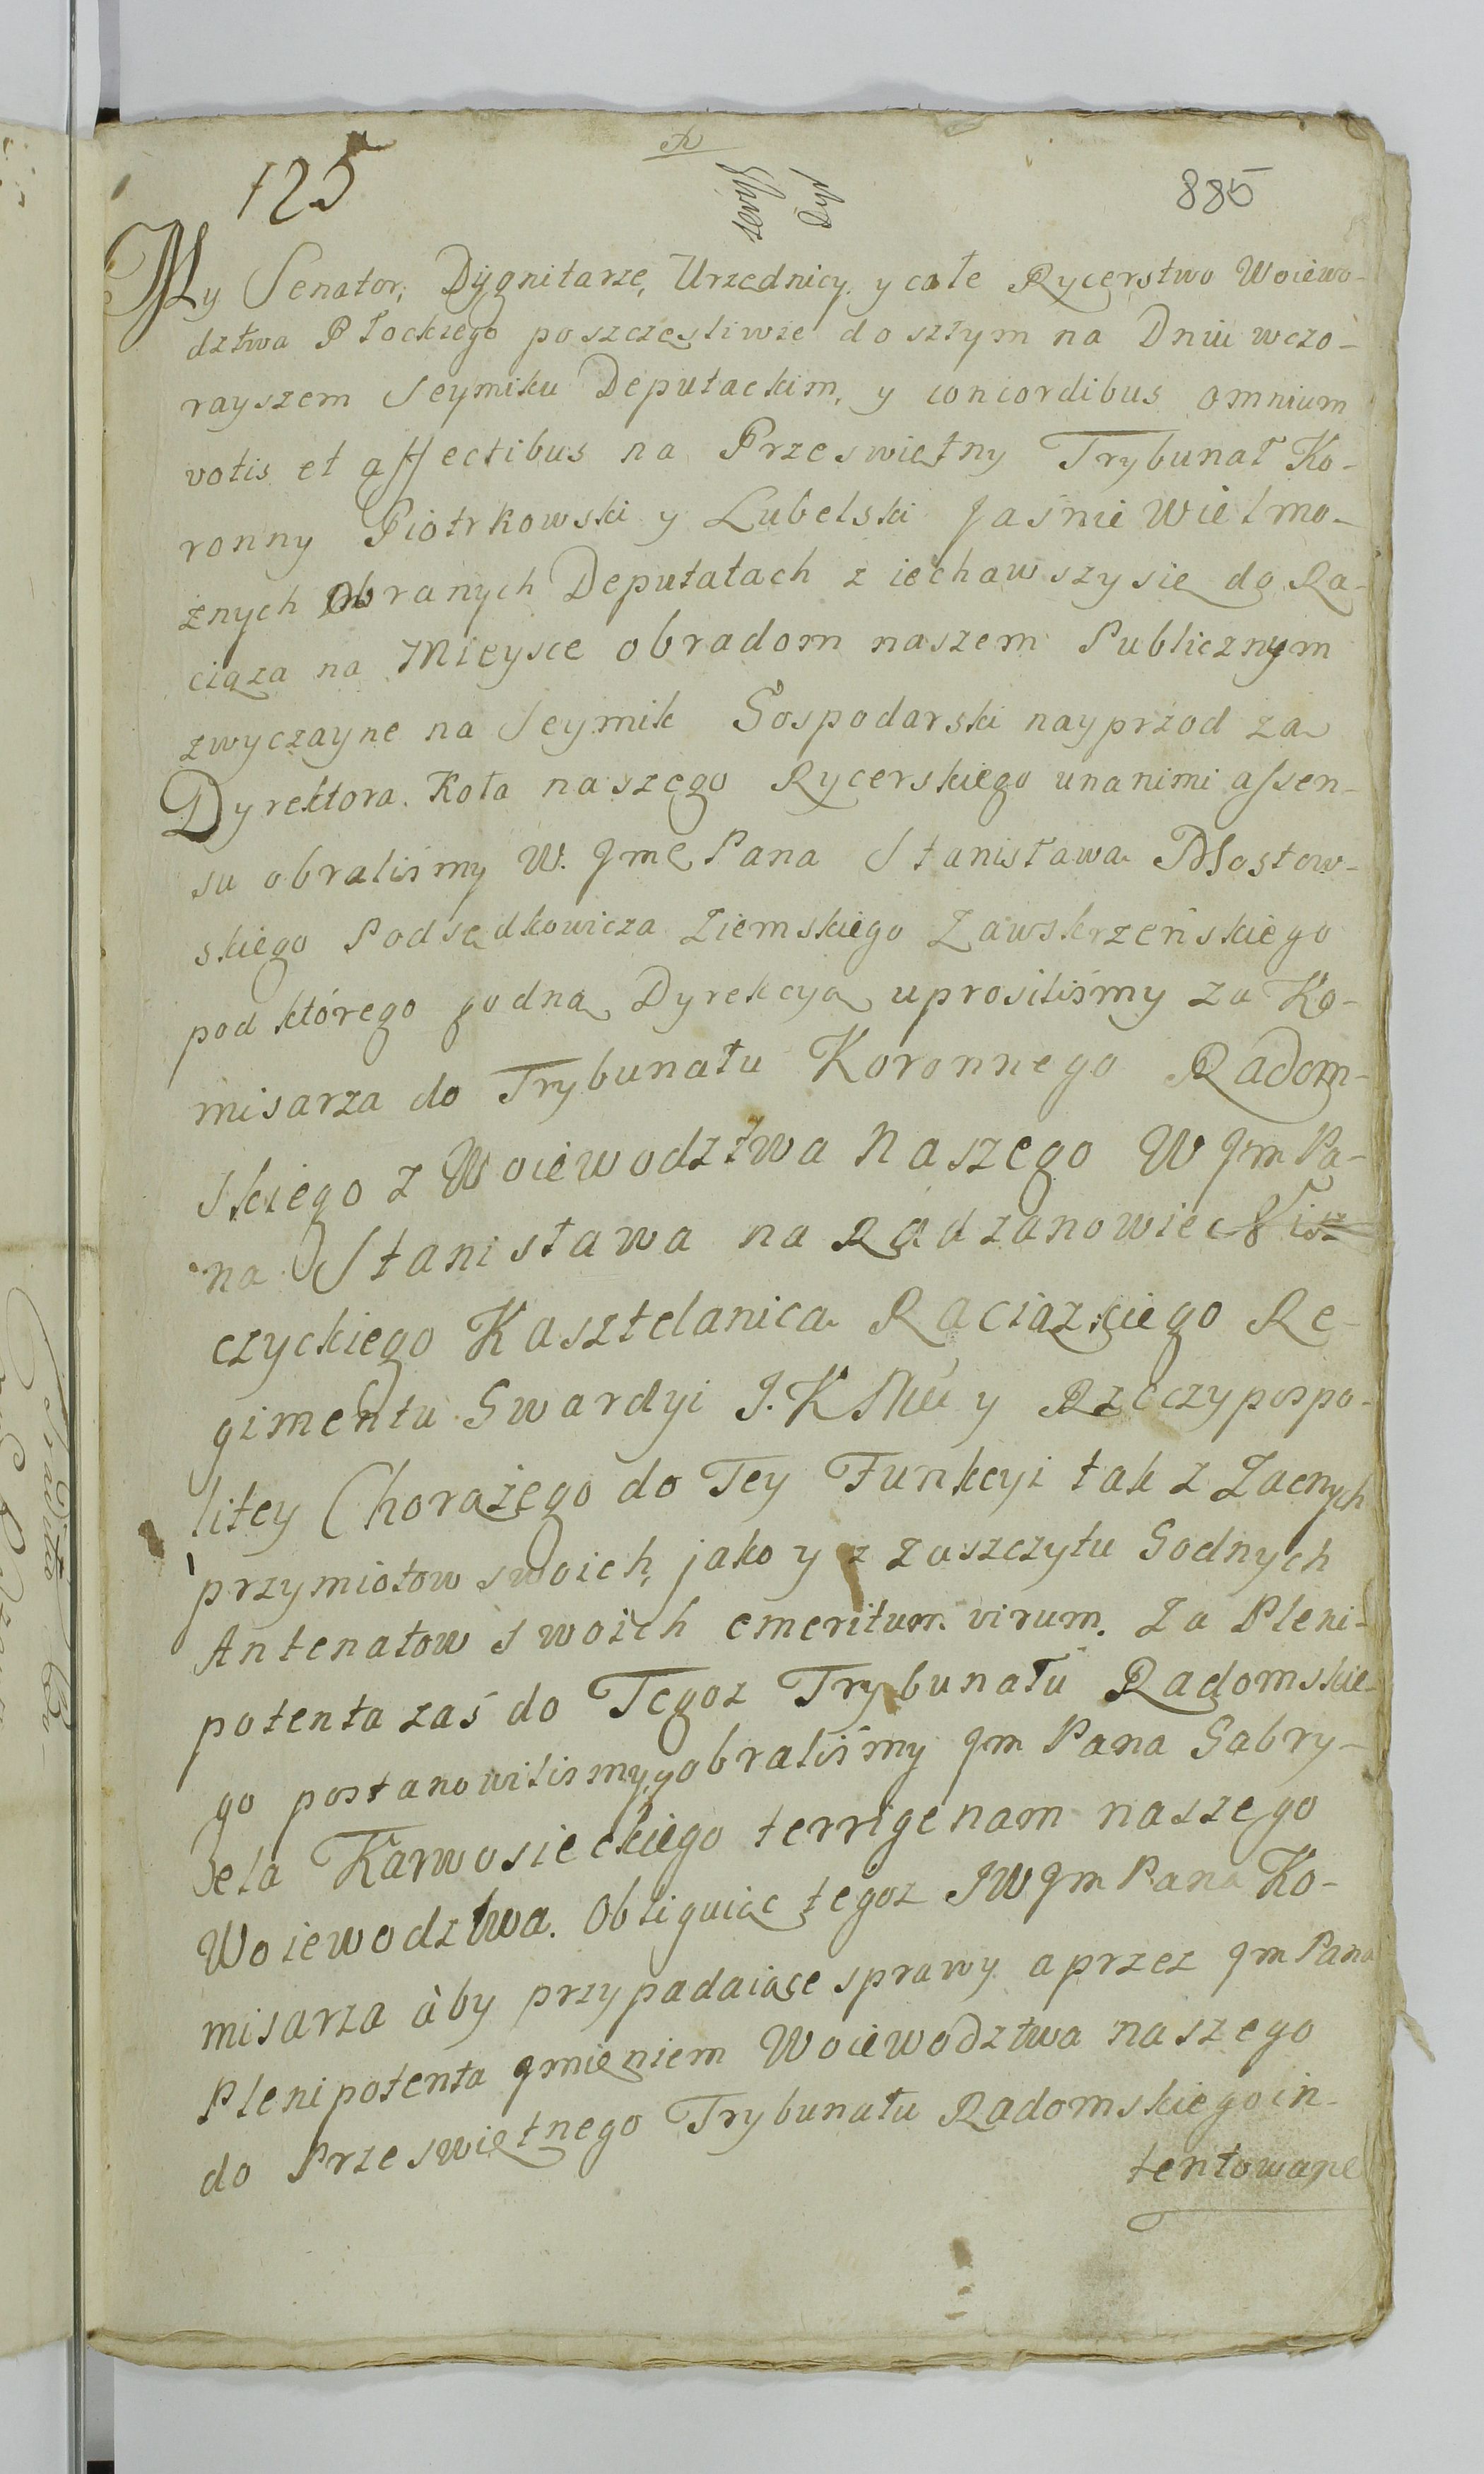 125
885
My Senator, Dygnitarze, Urzędnicy y całe Rycerstwo Woiewo-
dztwa Płockiego po szczęsliwie doszłym na Dniu wczo-
rayszem Seymiku Deputackim, y concordibus omnium
votis et affectibus na Przeswiętny Trybunał Ko-
ronny Piotrkowski y Lubelski Jaśnie Wielmo-
żnych Obranych Deputatach ziechawszy się do Ra-
ciąza na Mieysce obradom naszem Publicznym
zwyczayne na Seymik Gospodarski nayprzod za
Dyrektora Koła naszego Rycerskiego unanimi assen-
su obraliśmy W. Jmę Pana Stanisława Mostow-
skiego Podsędkowicza Ziemskiego Zawskrzeńskiego
pod którego godną Dyrekcyą uprosiliśmy za Ko-
misarza do Trybunału Koronnego Radom-
skiego z Woiewodztwa Naszego W Jm Pa-
na Stanisława na Radzanowie Nisz-
czyckiego Kasztelanica Raciązkiego Re-
gimentu Gwardyi J. K Mci y Rzeczypospo-
litey Chorążego do Tey Funkcyi tak z Zacnych
przymiotow swoich, jako y z zaszczytu Godnych
Antenatow swoich emeritum virum. Za Pleni-
potenta zaś do Tegoz Trybunału Radomskie-
go postanowilismy, y obraliśmy Jm Pana Gabry-
ela Karwosieckiego terrigenam naszego
Woiewodztwa. Obliguiąc tegoz JW Jm Pana Ko-
misarza aby przypadaiące sprawy a przez Jm Pana
Plenipotenta Jmieniem Woiewodztwa naszego
do Przeswiętnego Trybunału Radomskiego in-
tentowane